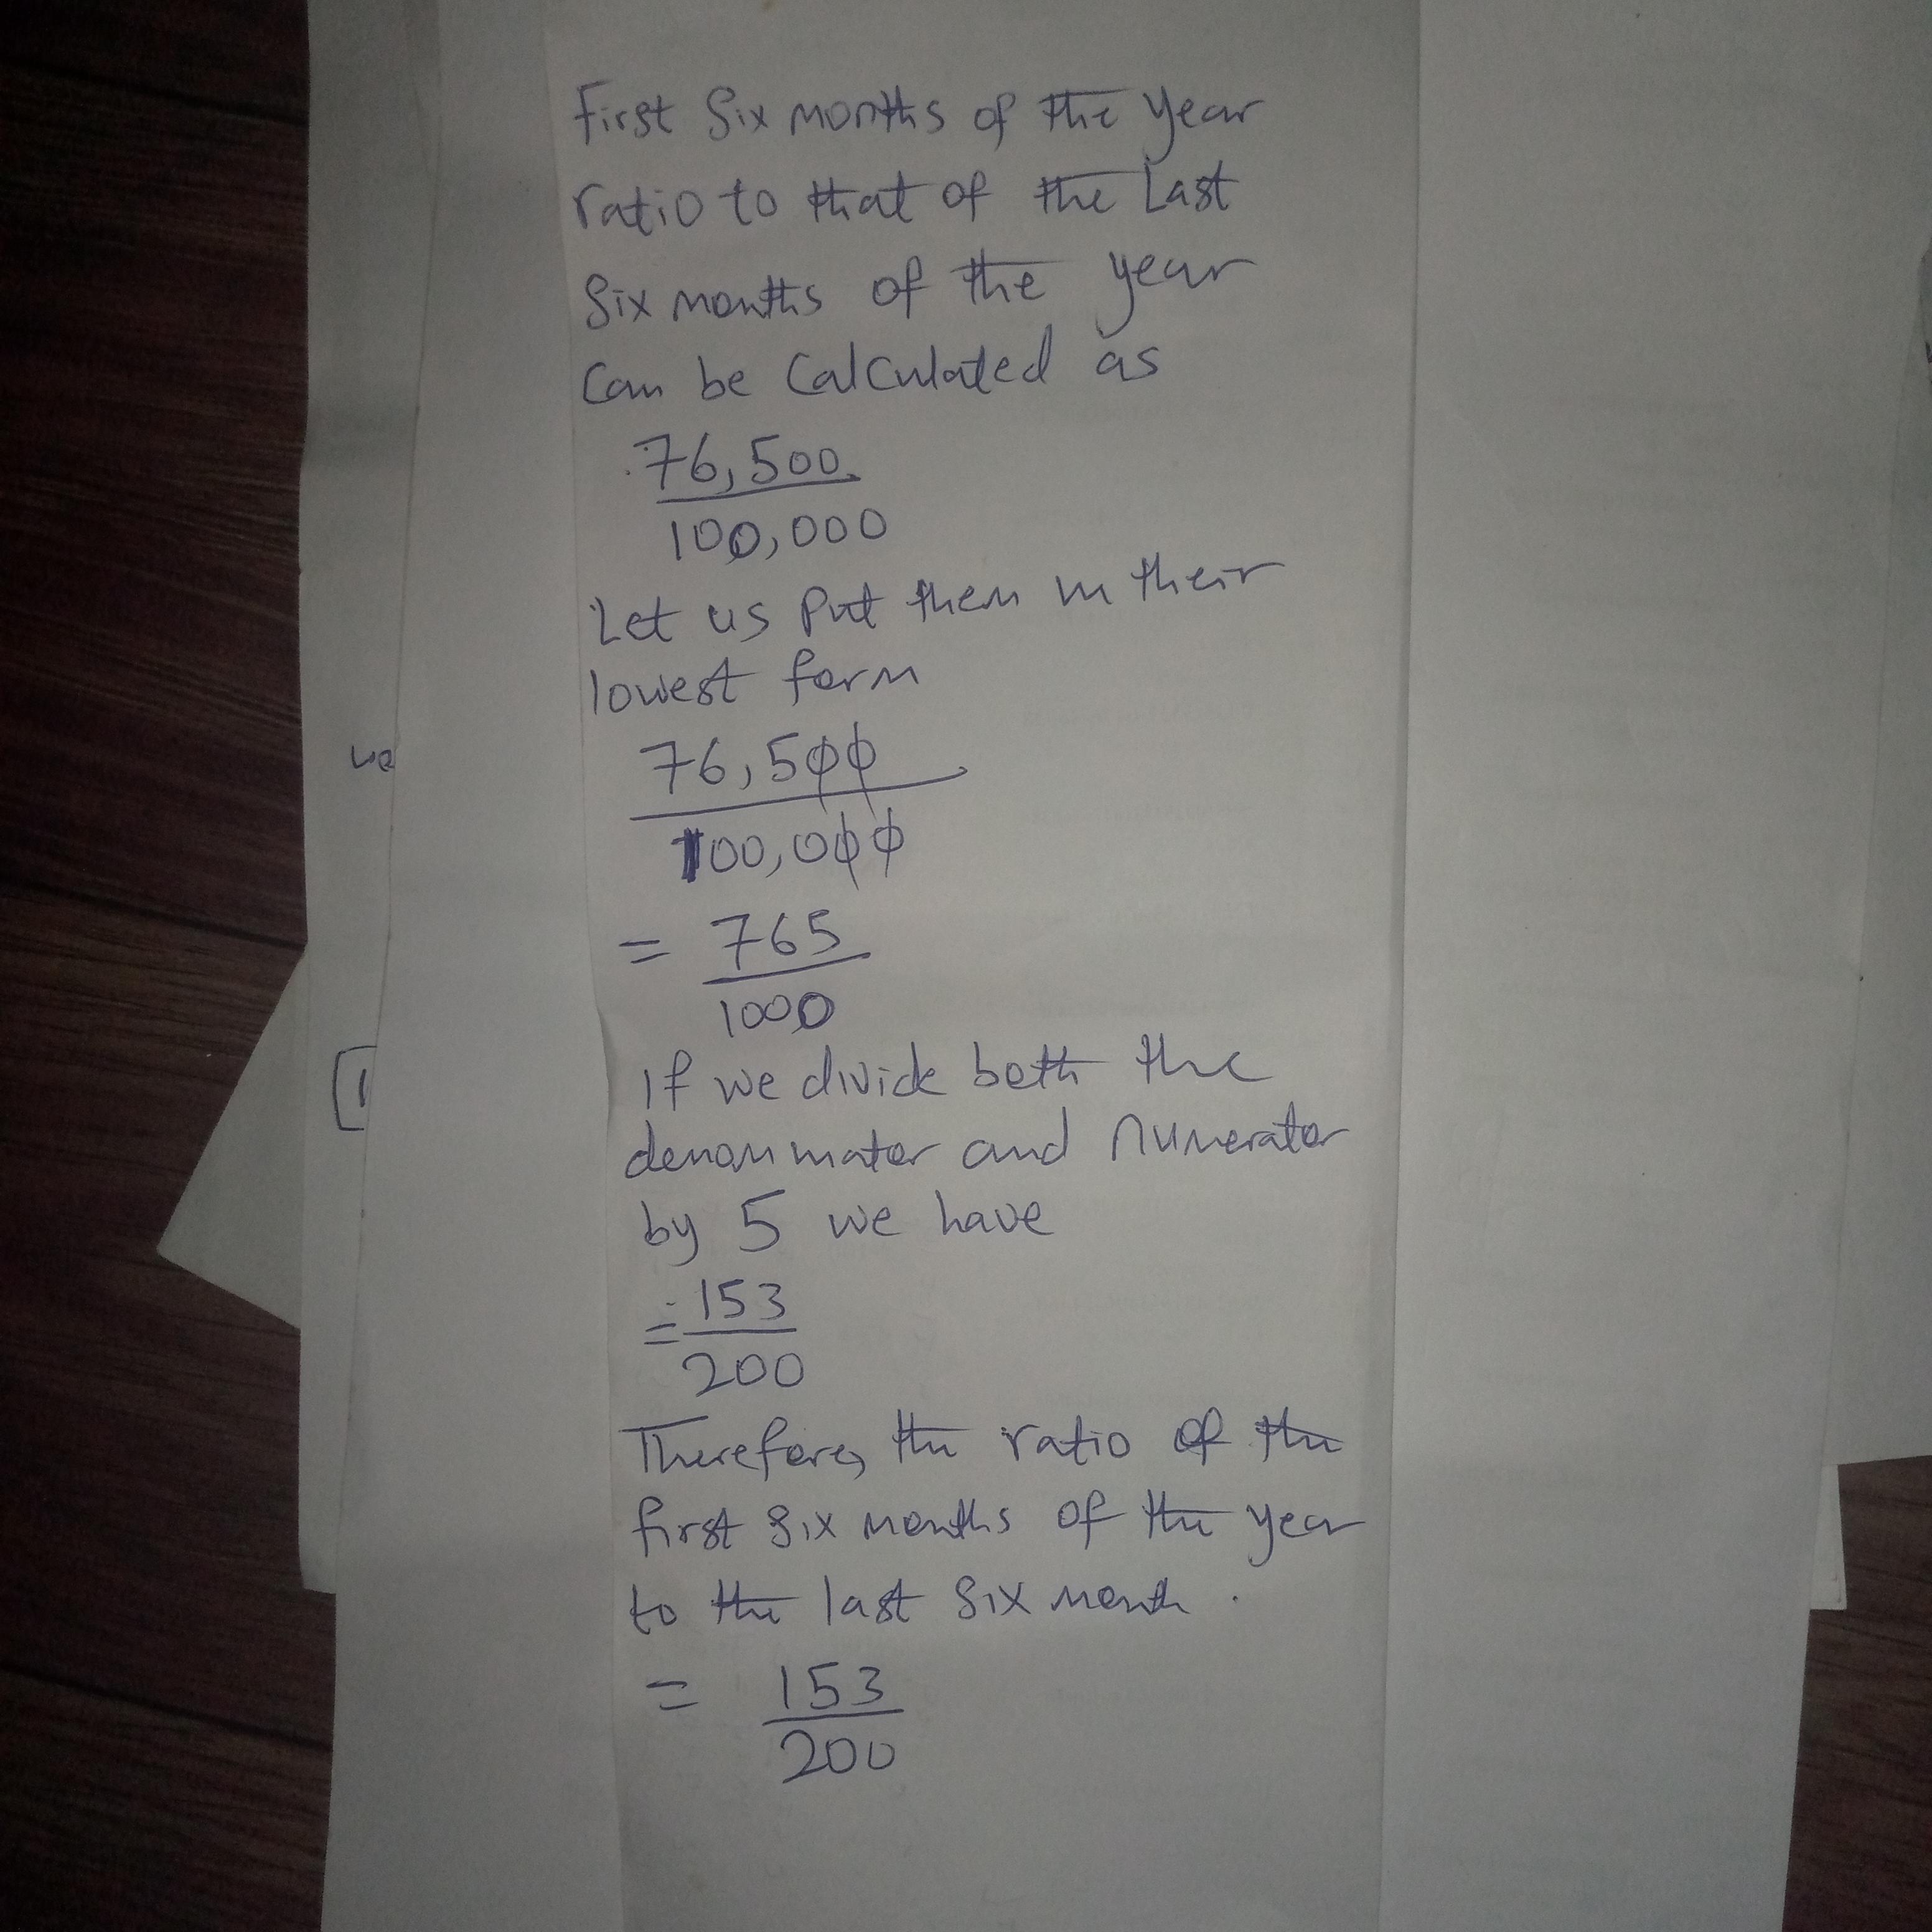 First Six months of the year
ratio to that of the Last
Six months of the year
Can be Calculated as
76,500
100,000
Let us Put them in their
lowest form
76,500
100,000
= 765
1000
If we divide both the
denominator and numerator
by 5 we have
= 153
200
Therefore, the ratio of the
first six months of the year
to the last six month.
= 153
200
we
[1